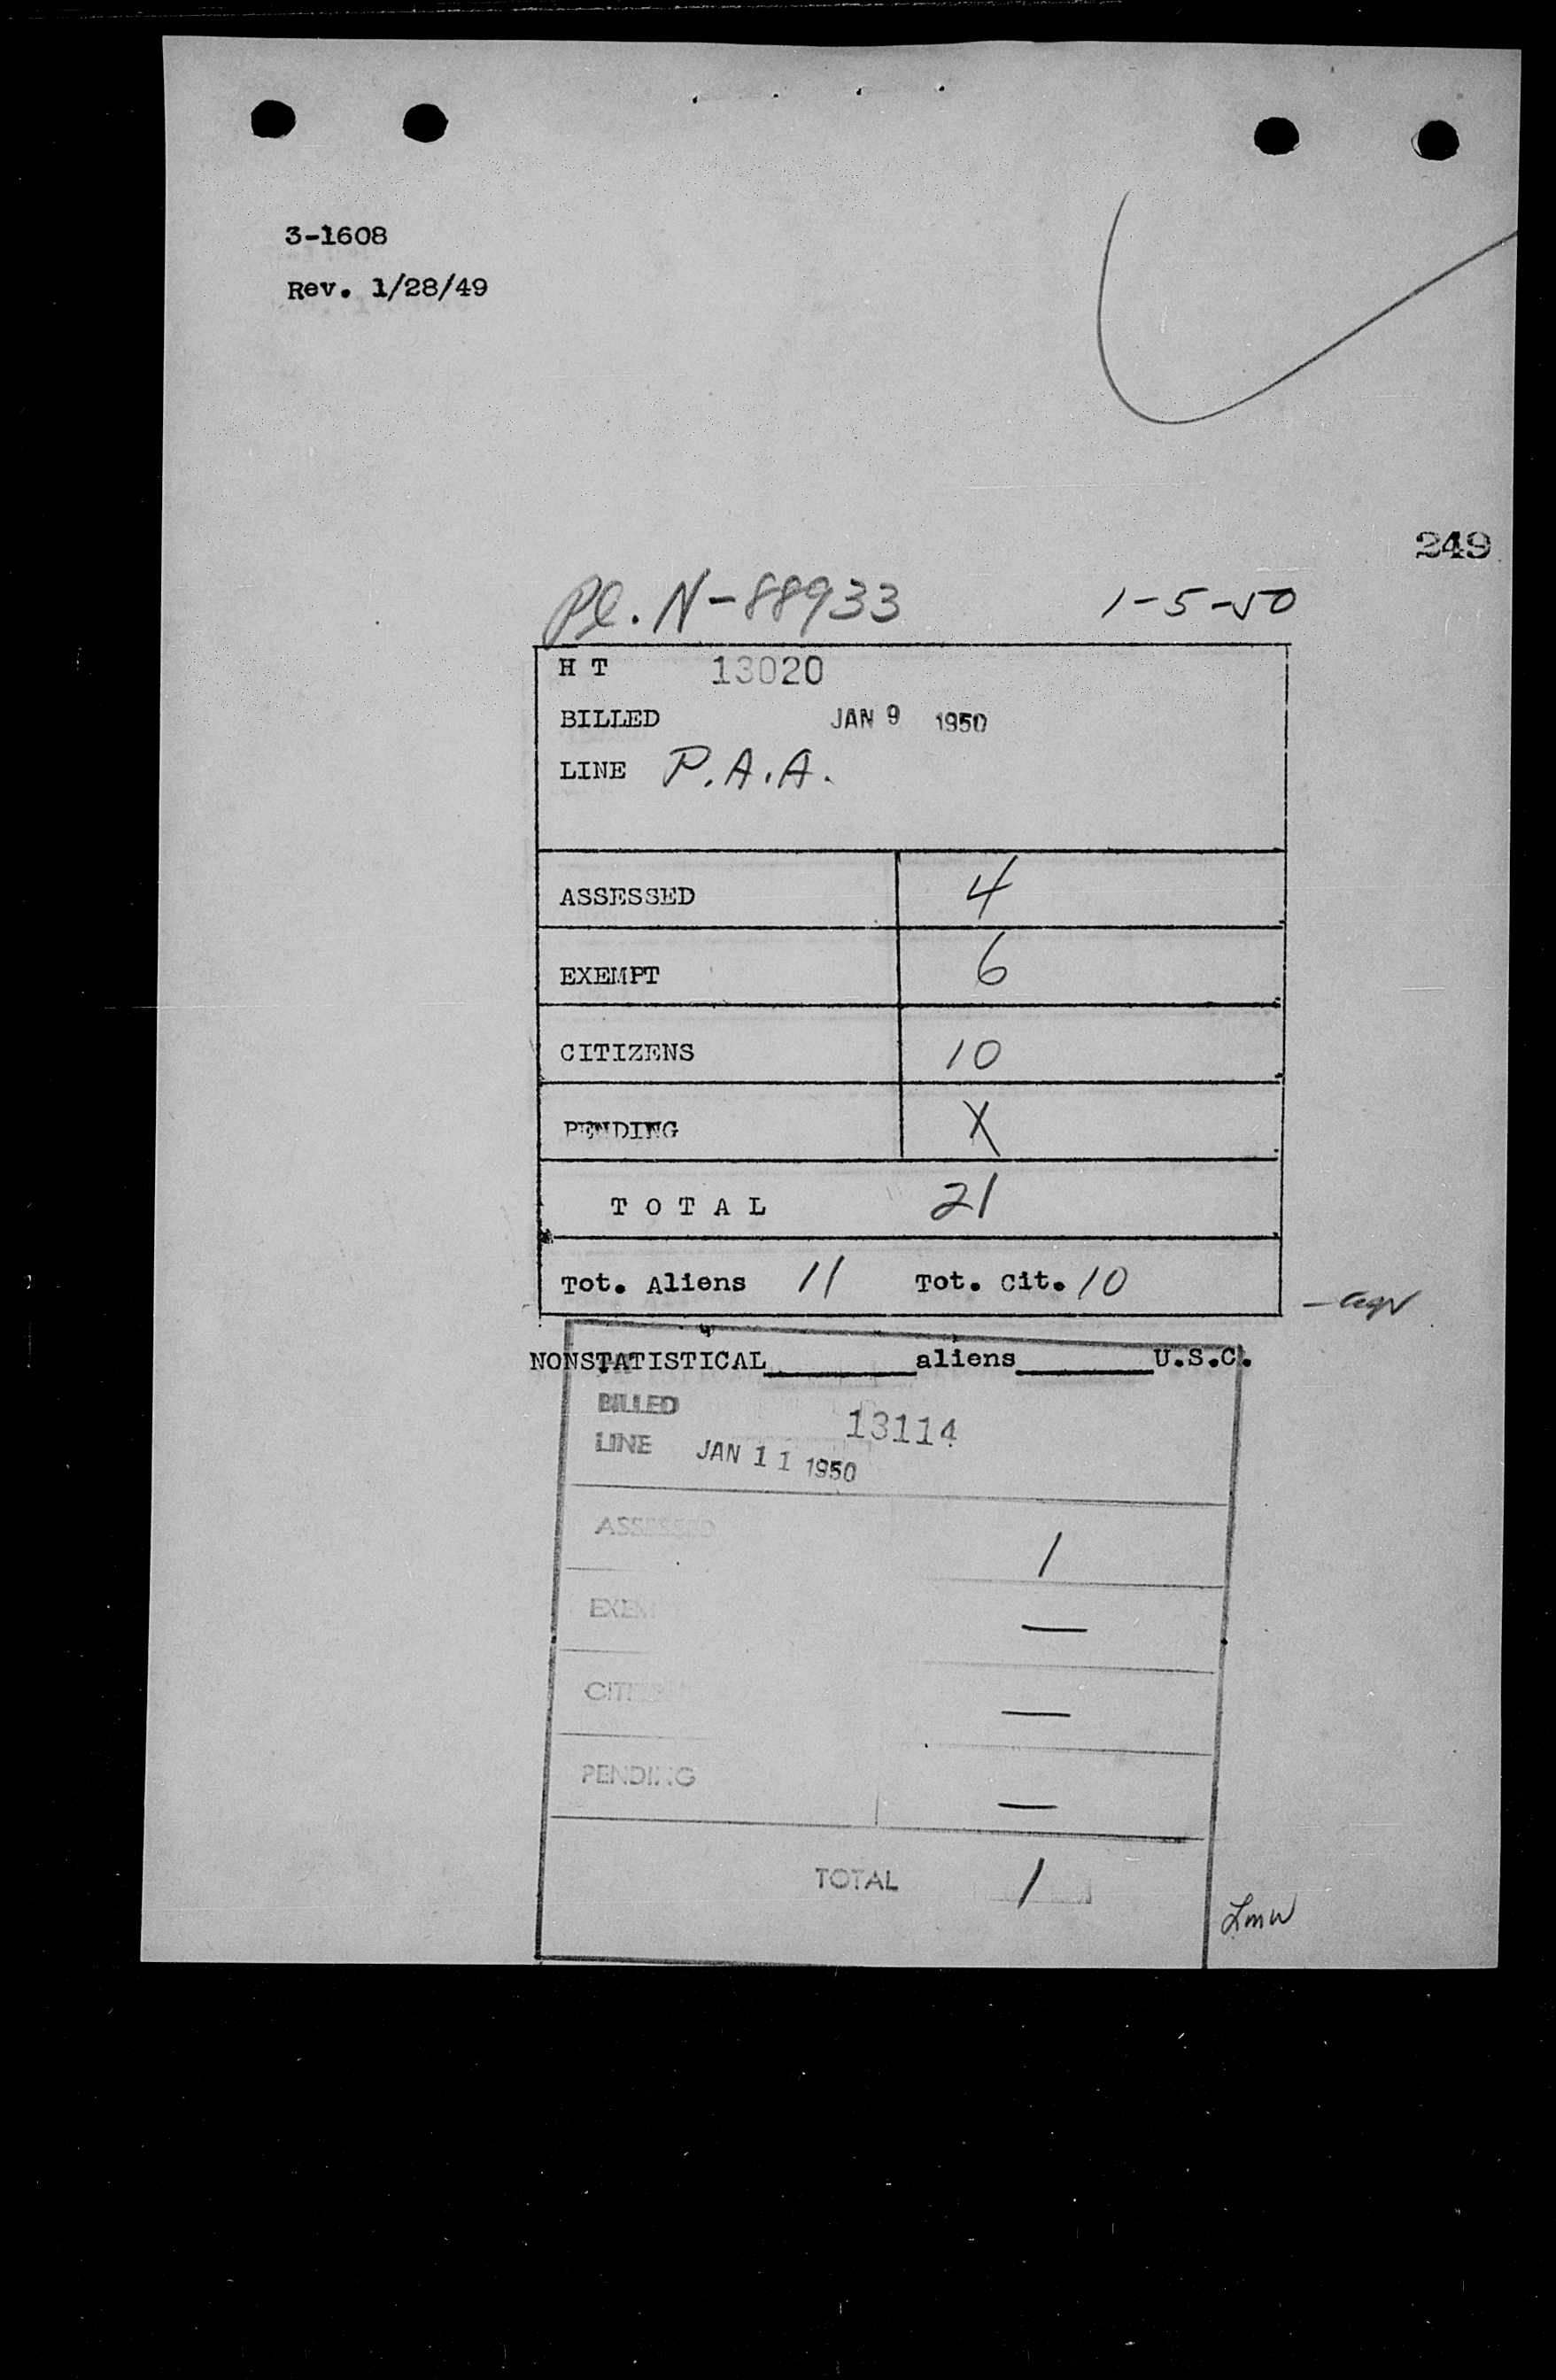 3-1608
Rev. 1/28/49
249
Pl. N-88933 1-5-50
H T 13020
BILLED JAN 9 1950
LINE P.A.A.
ASSESSED 4
EXEMPT 6
CITIZENS 10
PENDING X
T O T A L 21
Tot. Aliens 11 Tot. Cit. 10
NONSTATISTICAL aliens U.S.C.
BILLED 13114
LINE JAN 11 1950
ASSESSED 1
EXEM —
CITI —
PENDING —
TOTAL 1
Lmw